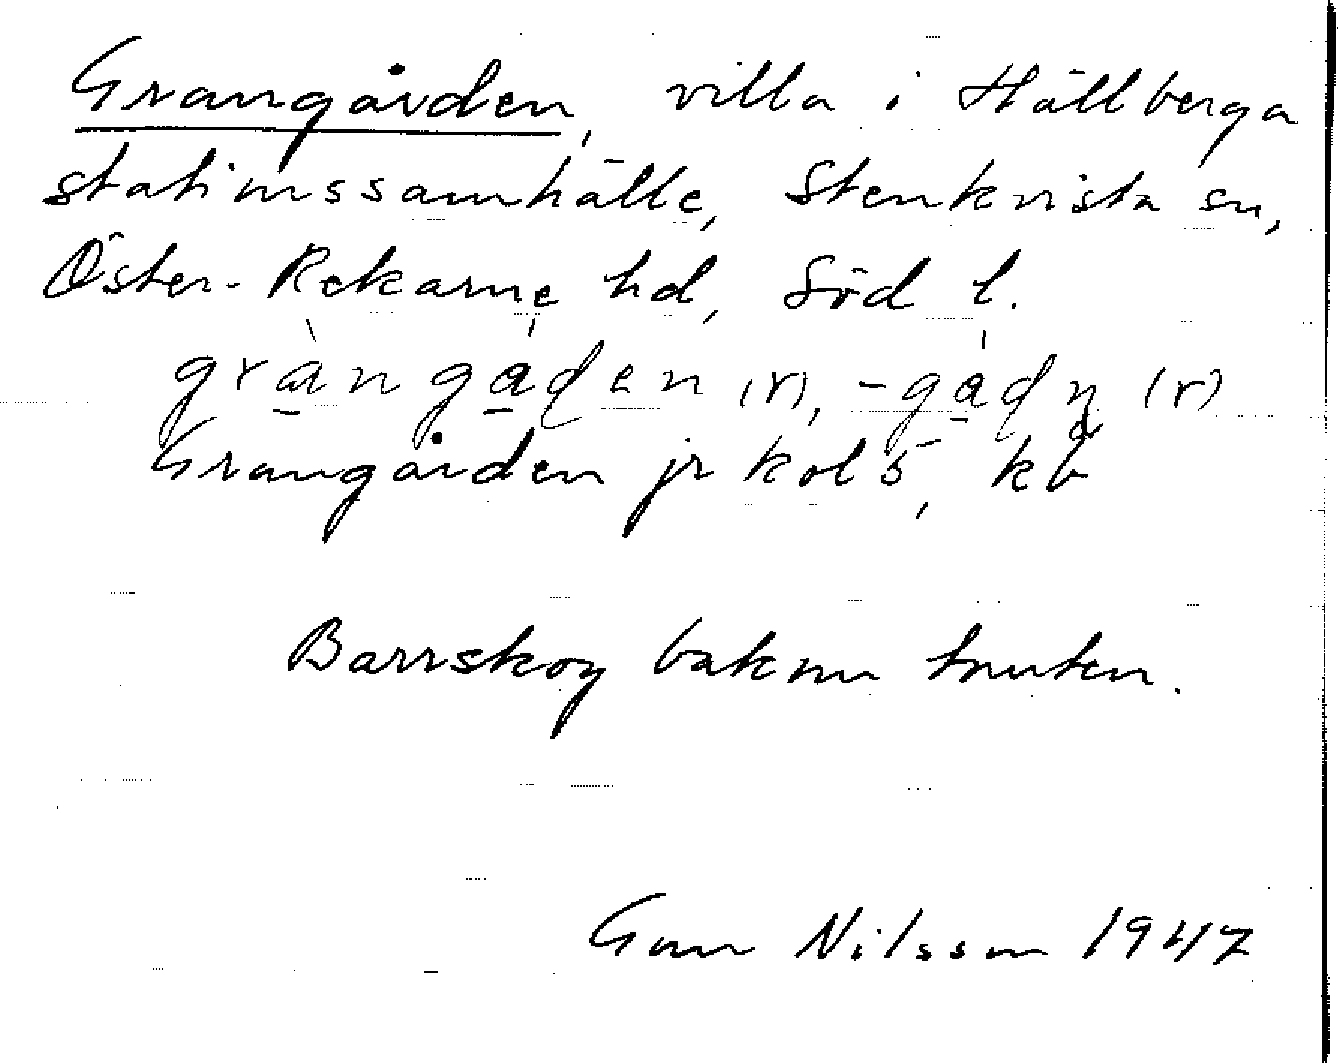 Grangården, villa i Hällberga
stationssamhälle, Stenkvista sn,
Öster-Rekarne hd, Söd l.
gràngåden (r), -gådn (r)
Grangården jr kol 5, kb
Barrskog bakom knuten.
Gun Nilsson 1947